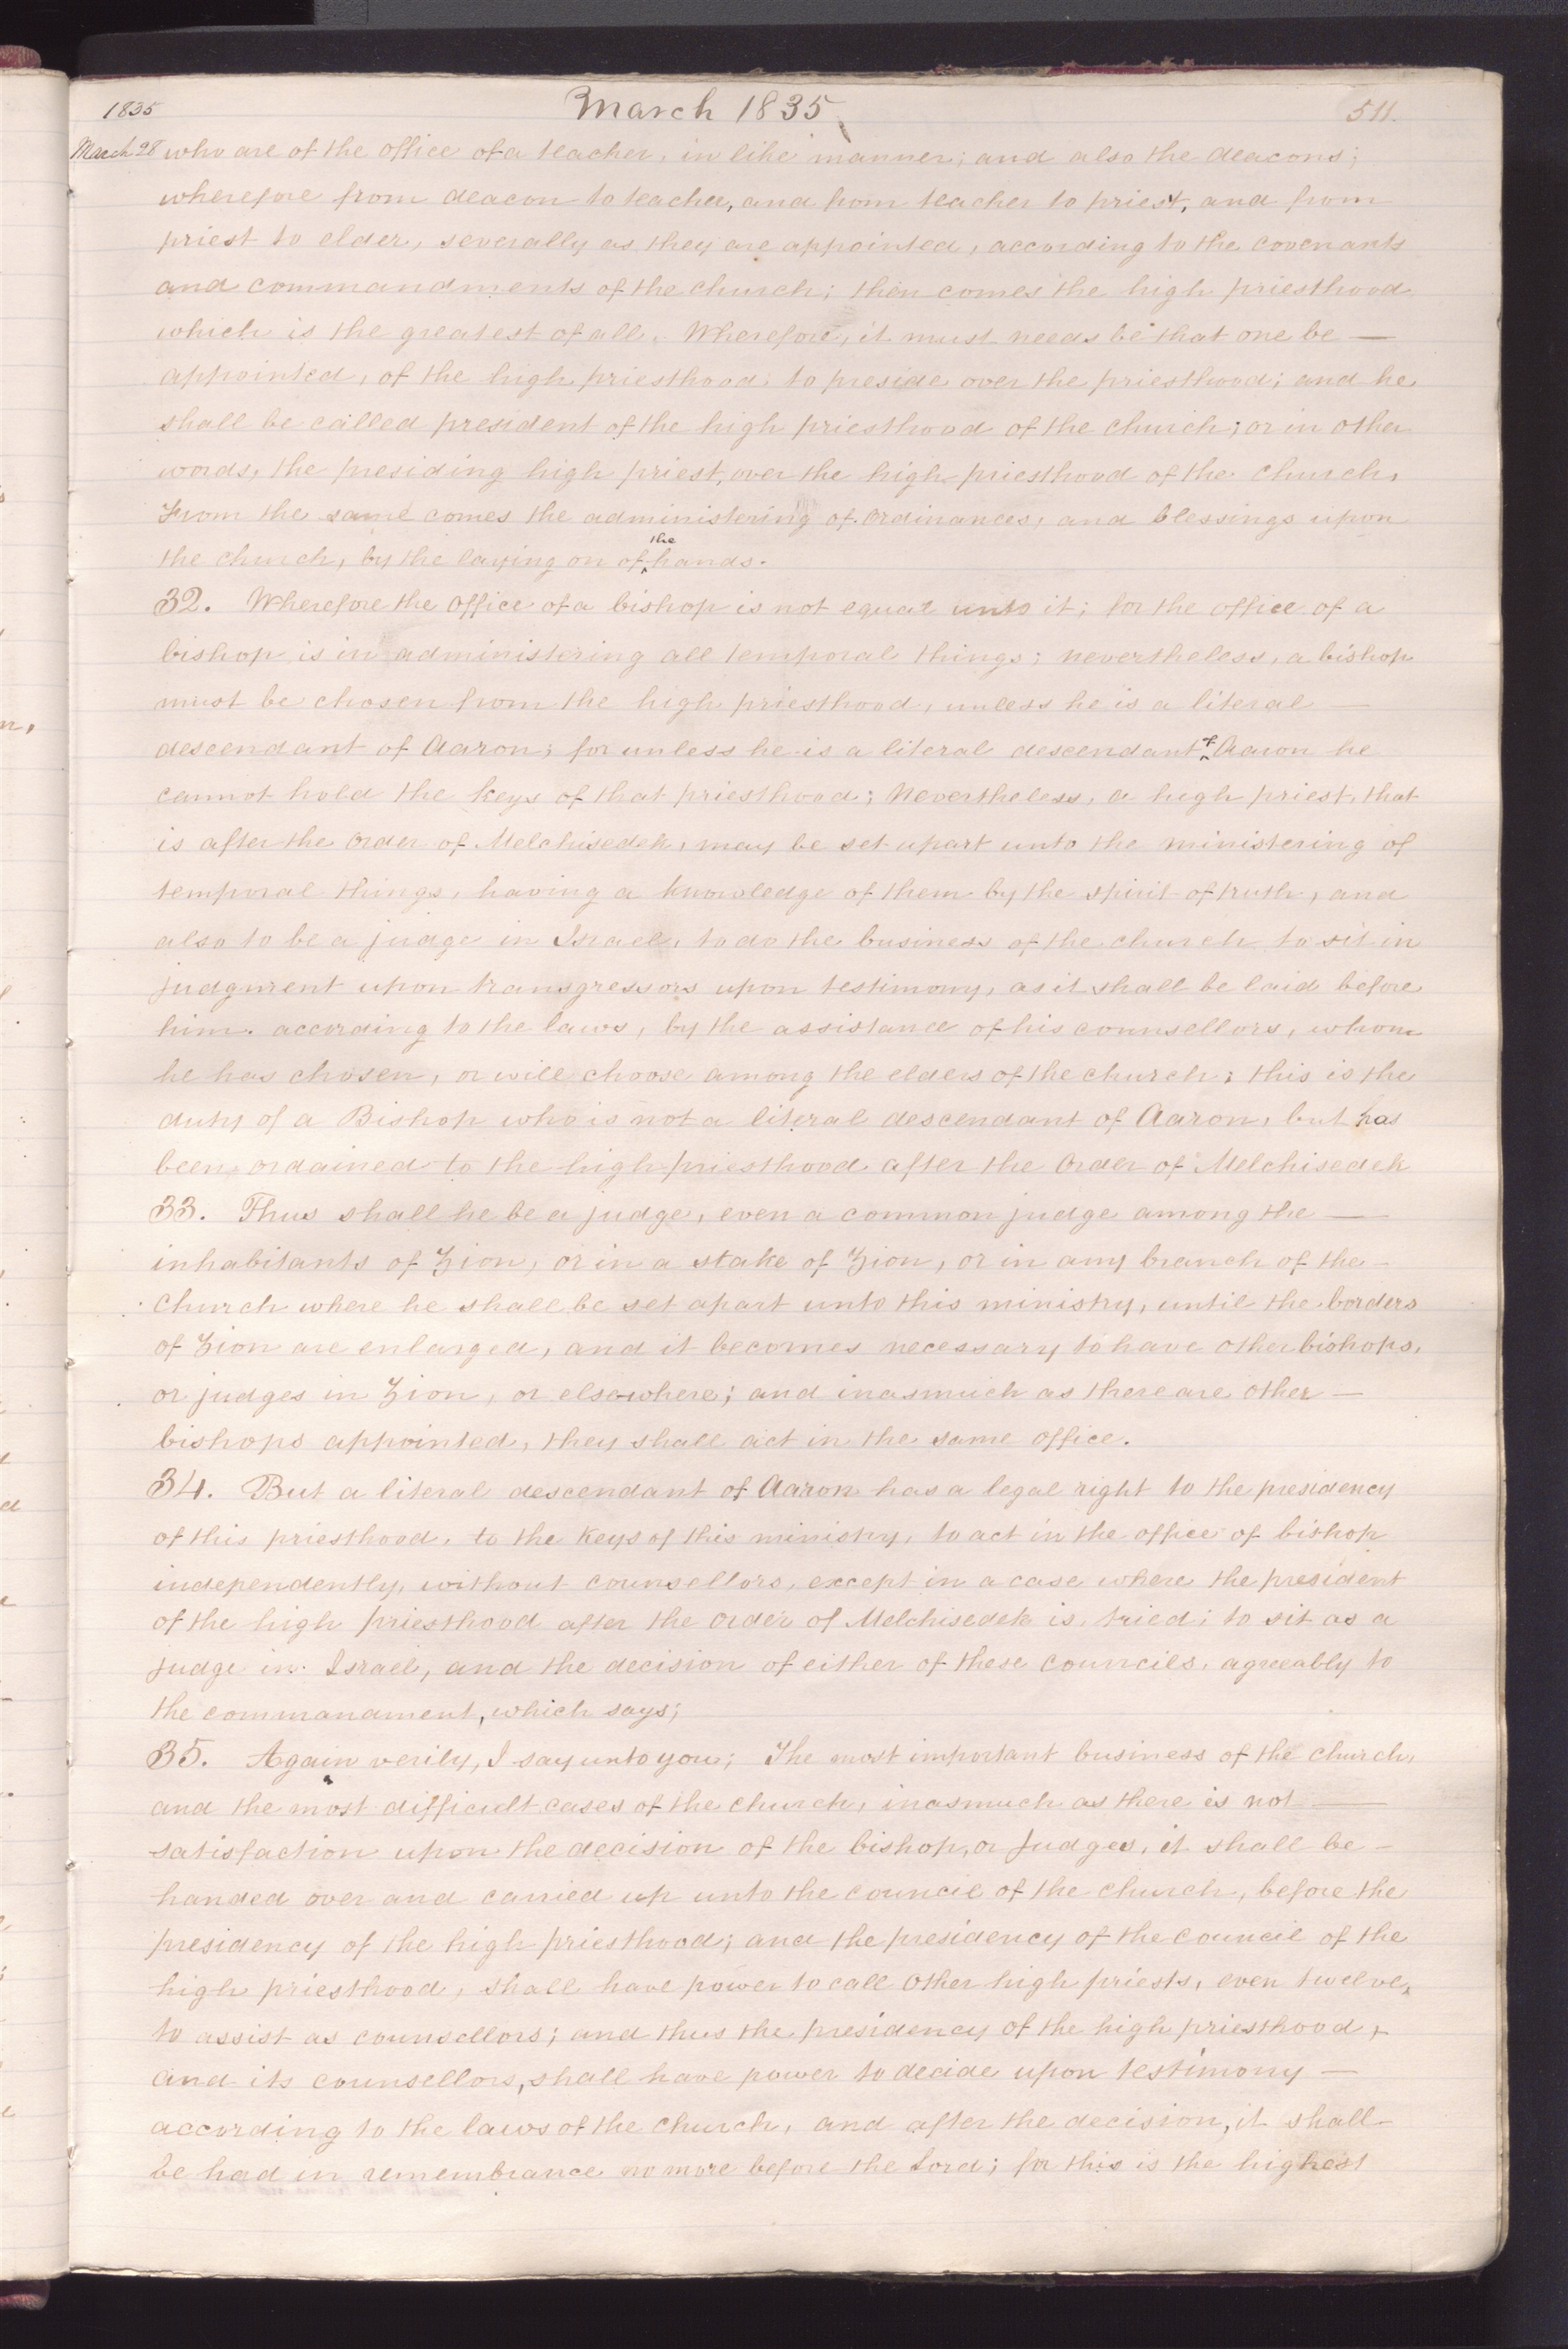 1835
March 1835
511.
March 28 who are of the office of a teacher, in like manner; and also the deacons;
wherefore from deacon to teacher, and from teacher to priest, and from
priest to elder, severally as they are appointed, according to the covenants
and commandments of the church; then comes the high priesthood
which is the greatest of all. Wherefore, it must needs be that one be —
appointed, of the high priesthood. to preside over the priesthood; and he
shall be called president of the high priesthood of the church; or in other
words, the presiding high priest, over the high priesthood of the church.
From the same comes the administering of ordinances, and blessings upon
the church, by the laying on of the hands.
32. Wherefore the office of a bishop is not equal unto it; for the office of a
bishop is in administering all temporal things; nevertheless, a bishop
must be chosen from the high priesthood, unless he is a literal —
descendant of Aaron; for unless he is a literal descendant of Aaron he
cannot hold the keys of that priesthood; Nevertheless, a high priest, that
is after the order of Melchisedek, may be set apart unto the ministering of
temporal things, having a knowledge of them by the spirit of truth, and
also to be a judge in Israel, to do the business of the church to sit in
judgment upon transgressors upon testimony, as it shall be laid before
him. according to the laws, by the assistance of his counsellors, whom
he has chosen, or will choose among the elders of the church; this is the
duty of a Bishop who is not a literal descendant of Aaron, but has
been ordained to the high priesthood after the order of Melchisedek
33. Thus shall he be a judge, even a common judge among the —
inhabitants of Zion, or in a stake of Zion, or in any branch of the –
church where he shall be set apart unto this ministry, until the borders
of Zion are enlarged, and it becomes necessary to have other bishops,
or judges in Zion, or elsewhere; and inasmuch as there are other —
bishops appointed, they shall act in the same office.
34. But a literal descendant of Aaron has a legal right to the presidency
of this priesthood, to the keys of this ministry, to act in the office of bishop
independently, without counsellors, except in a case where the president
of the high priesthood after the order of Melchisedek is tried; to sit as a
judge in Israel, and the decision of either of these councils, agreeably to
the commandment, which says;
35. Again verily, I say unto you; The most important business of the church,
and the most difficult cases of the church, inasmuch as there is not —
satisfaction upon the decision of the bishop, or judges, it shall be –
handed over and carried up unto the council of the church, before the
presidency of the high priesthood; and the presidency of the council of the
high priesthood, shall have power to call other high priests, even twelve,
to assist as counsellors; and thus the presidency of the high priesthood,
and its counsellors, shall have power to decide upon testimony —
according to the laws of the church, and after the decision, it shall –
be had in remembrance no more before the Lord; for this is the highest